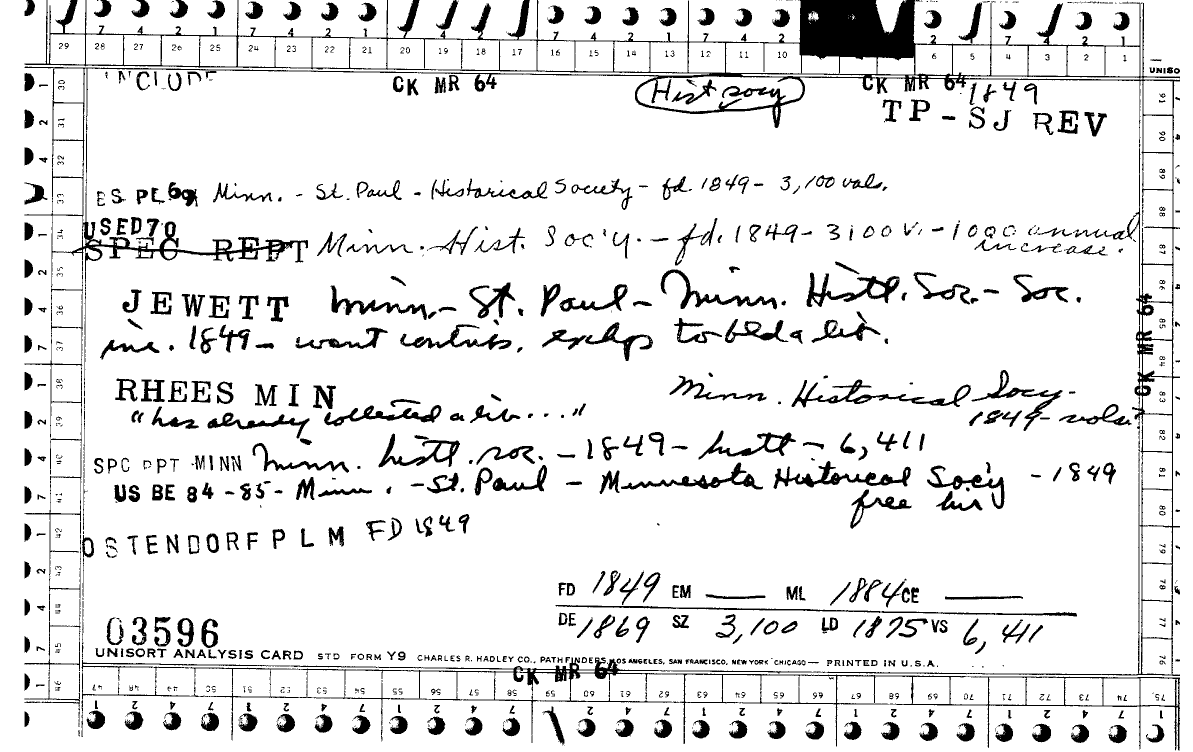 7 4 2 1 7 4 2 1 7 4 2 1 7 4 2 1 2 1 7 4 2 1
29 28 27 26 25 24 23 22 21 20 19 18 17 16 15 14 13 12 11 10 6 5 4 3 2 1
UNISO
INCLUDE CK MR 64 Hist socy CK MR 64 1849
TP-SJ REV
ES PL 69 Minn. - St. Paul - Historical Society - fd. 1849 - 3,100 vols.
USED 70
SPEC REPT Minn. Hist. Soc'y. - fd. 1849 - 3100 v. - 1000 annual
increase.
JEWETT Minn. - St. Paul - Minn. Histl. Soc. - Soc.
inc. 1849 - want contribs, exchgs to bld a lib.
RHEES MIN Minn. Historical Socy.
"has already collected a lib..." 1849 - vols?
SPC RPT MINN Minn. histl. soc. - 1849 - histl - 6,411
US BE 84-85 - Minn. - St. Paul - Minnesota Historical Soc'y - 1849
free
OSTENDORF P L M FD 1849
FD 1849 EM ___ ML 1884 CE ___
DE 1869 SZ 3,100 LD 1875 VS 6,411
03596
UNISORT ANALYSIS CARD STD FORM Y9 CHARLES R. HADLEY CO., PATHFINDERS, LOS ANGELES, SAN FRANCISCO, NEW YORK CHICAGO — PRINTED IN U.S.A.
CK MR 64
CK MR 64
47 48 49 50 51 52 53 54 55 56 57 58 59 60 61 62 63 64 65 66 67 68 69 70 71 72 73 74 75